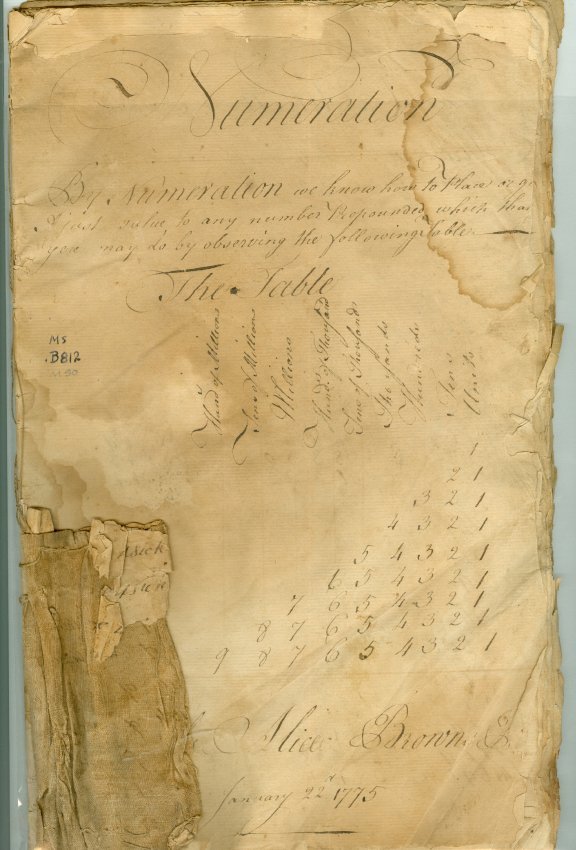 Numeration
By Numeration we know how to Place or
a just value to any number Propounded which
you may do by observing the following Table
The Table
Hund of Millions
Tens of Millions
Millions
Hund of Thousand
Tens of Thousands
Thousands
Hundreds
Tens
Units
MS
.B812
1
2 1
3 2 1
4 3 2 1
5 4 3 2 1
6 5 4 3 2 1
7 6 5 4 3 2 1
8 7 6 5 4 3 2 1
9 8 7 6 5 4 3 2 1
Brown
January 22 1775